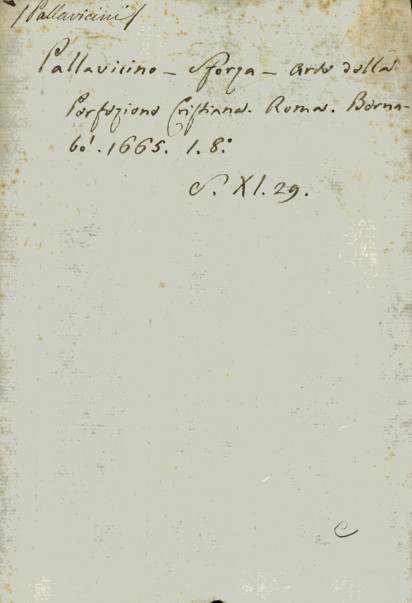 /Pallavicini/
Pallavicino – Sforza – Arte della
Perfezione Cristiana. Roma. Berna-
bò. 1665. 1. 8.°
S. XI. 29.
C